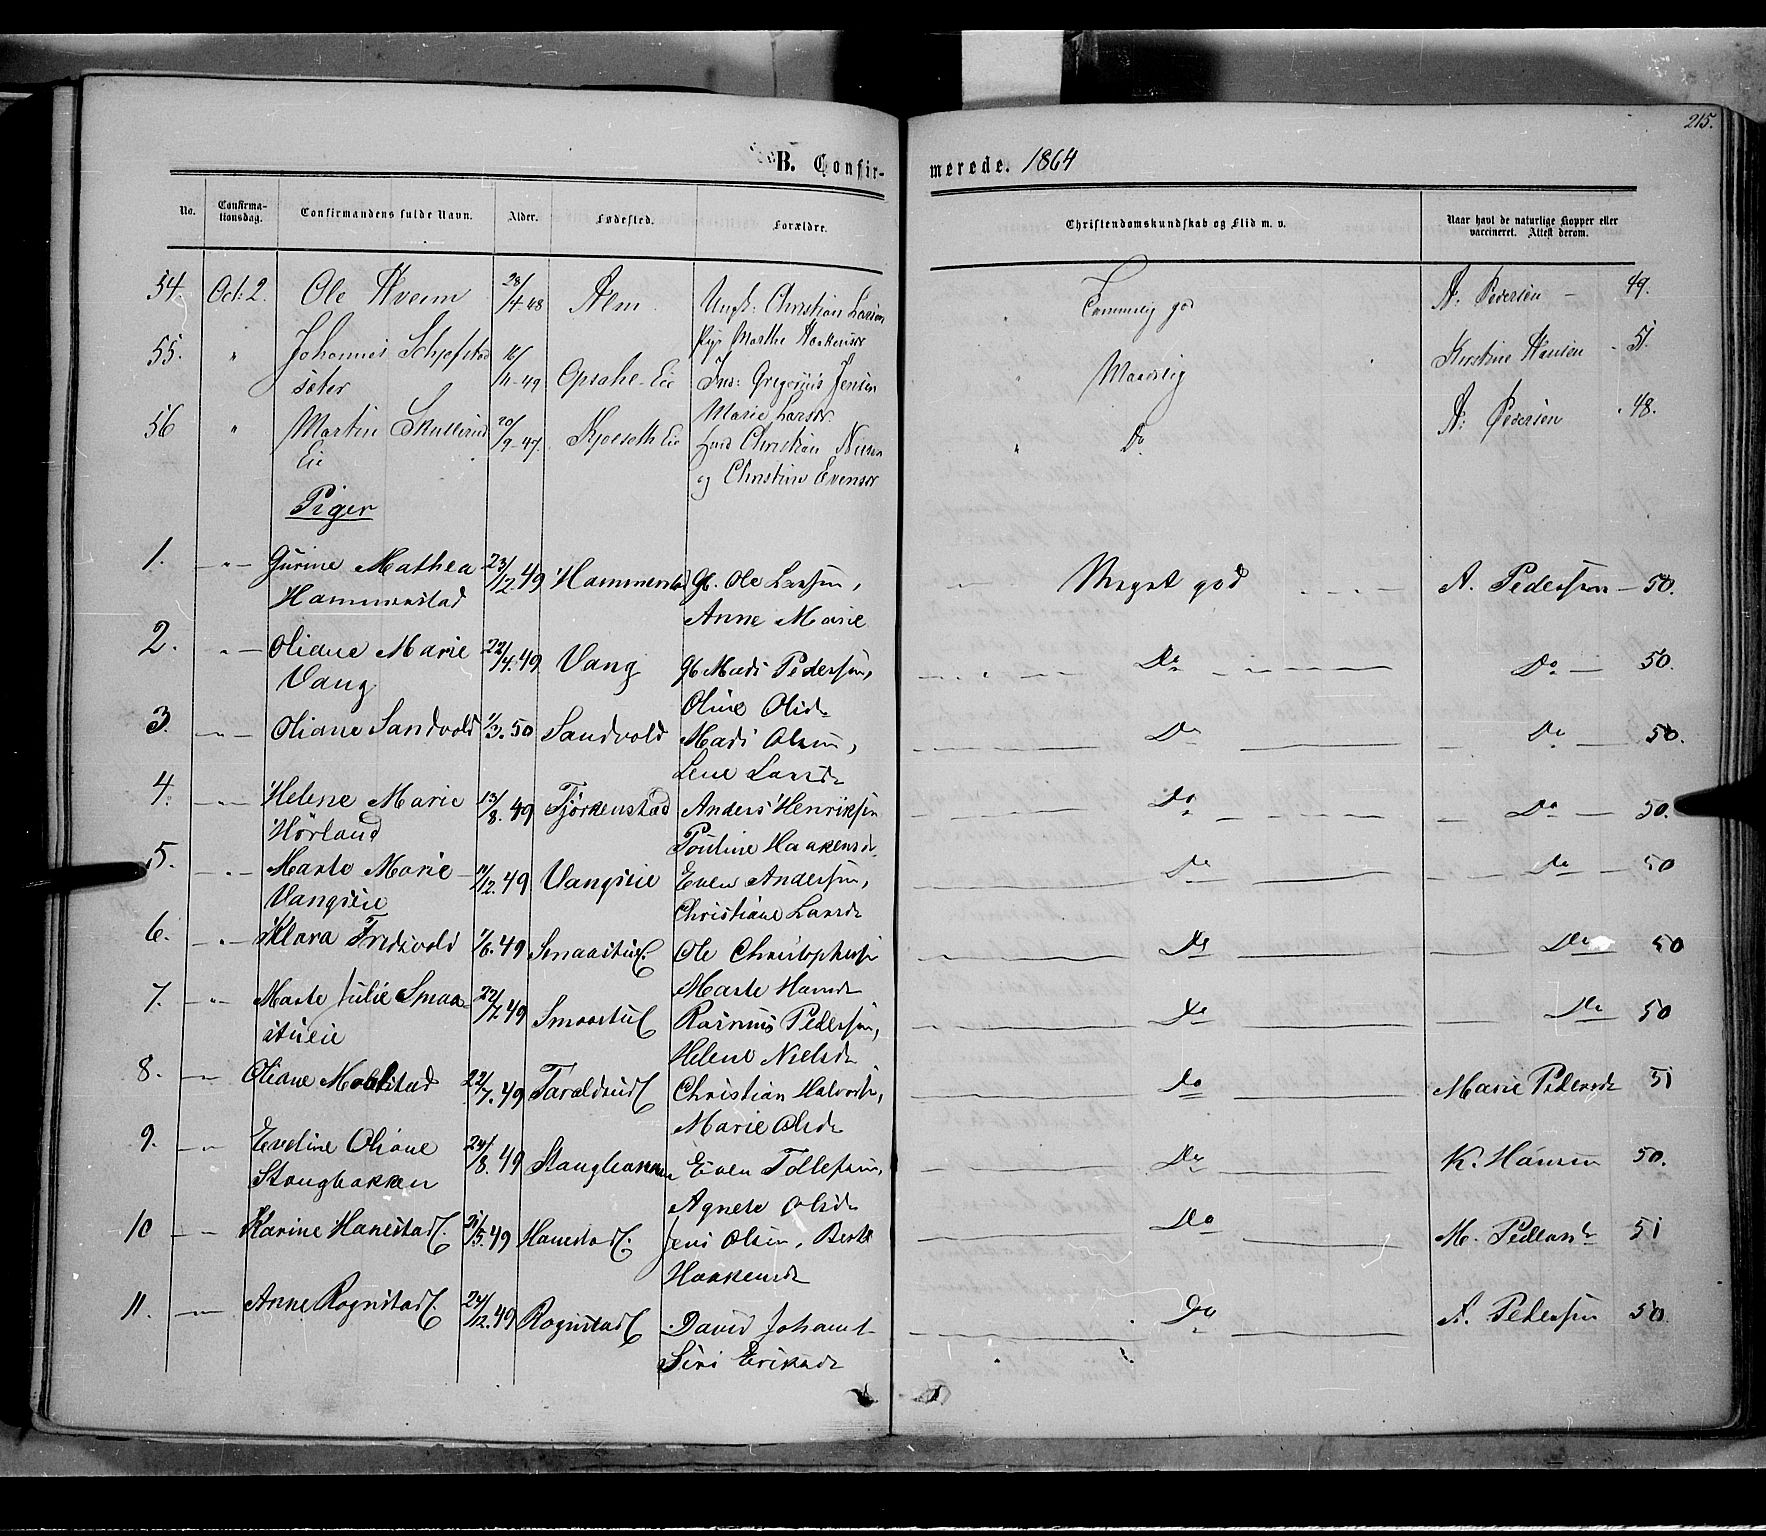 215.
B. Confirmerede. 1864
No. Confirmationsdag. Confirmandens fulde Navn. Alder. Fødested. Forældre. Christendomskundskab og Flid m. v. Naar havt de naturlige Kopper eller vaccineret. Attest derom.
54. Oct: 2. Ole Hveem 28/4-48 Alm Ungk: Christian Larsen Temmelig god A. Pedersen - 49.
Pige Marthe Haakensdr
55. " Johannes Schjefstad 16/11-49 Opsahl-Eie Ins: Gregorius Jensen Maadelig Kirstine Hansen - 51.
sæter Marie Larsdr.
56 " Martin Skullerud 20/9-47. Kjolseth Eie Christian Do A: Pedersen 48.
Eie og Christine Evensdr
Piger
1. - " - Gurine Mathea 23/12.49 Hammerstad Gb. Ole Larsen, Meget god A. Pedersen - 50.
Hammerstad Anne Marie
2. " - Oliane Marie 22/4.49 Vang Gb Mads Pedersen, Do Do - 50.
Vang Oline Olsd
3. - " - Oliane Sandvold 1/3.50 Sandvold Mads Olsen, Do Do - 50.
Lene Larsd
4. - " - Helene Marie 13/8.49 Fjørkenstad Anders Henriksen Do Do - 50.
Hörland Pouline Haakensd
5. - " - Marte Marie 11/12.49 Vangseie Even Andersen, Do Do - 50
Vangseie Christiane Larsd
6. - " - Klara Fredsvold 1/6.49 Smaastu Ole Christophersen Do Do 50
Marte Hansd
7. - " - Marte Julie Smaa- 22/7.49 Smaastu Rasmus Pedersen, Do Do 50
stueie Helene Nielsd
8. - " - Oliane Moldstad 22/7.49 Taraldrud Christian Halvorsen, Do Marie Pedersd 51
Marie Olsd
9. - " - Eveline Oliane 24/8.49 Stangbakken Even Tollefsen, Do K. Hansen 50.
Stangbakken Agnete Olsd
10 - " - Karine Hanestad 31/5.49 Hanestad Jens Olsen, Berte Do M. Pedersd 51
Haakensd
11. - " - Anne Rognstad 24/12.49 Rognstad David Johans Do A. Pedersen 50.
Siri Eriksd